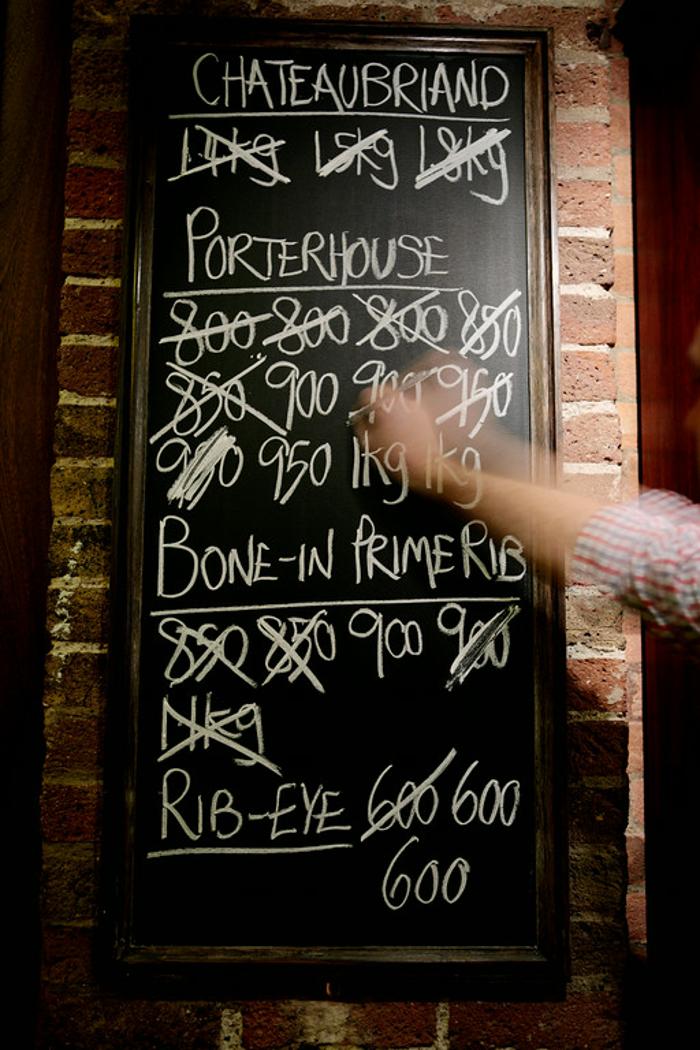 CHATEAUBRIAND
1.5kg 1.8kg
PORTERHOUSE
800 800 800 850
850 900 900 950
950 1kg 1kg
BONE-IN PRIME RIB
850 850 900 900
1.1kg
RIB-EYE 600 600
600